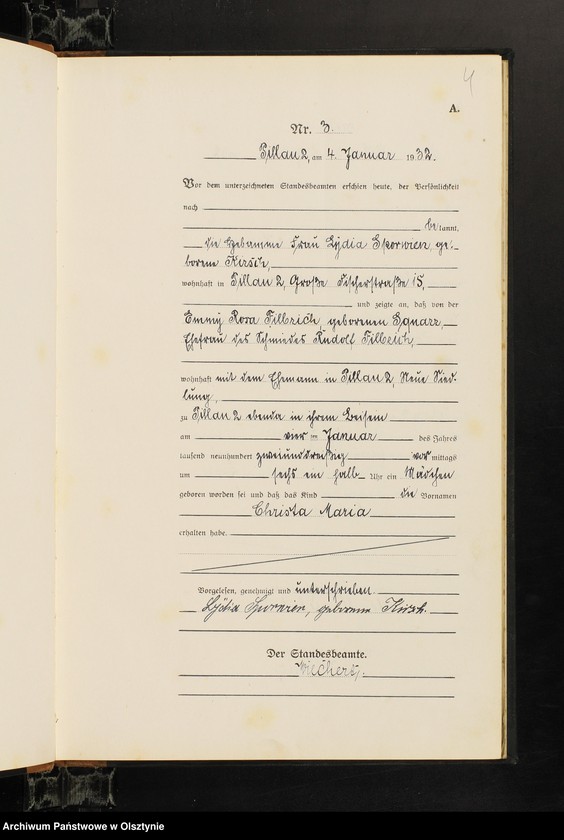 4
A.
Nr. 3.
Pillau 2, am 4. Januar 1932.
Vor dem unterzeichneten Standesbeamten erschien heute, der Persönlichkeit
nach
bekannt,
die Hebamme Frau Lydia ge-
borene Kirsch,
wohnhaft in Pillau 2, Große Fischerstraße 15,
und zeigte an, daß von der
Emmy Rosa geborenen
Ehefrau des Schmiedes Rudolf
wohnhaft mit dem Ehemann in Pillau 2, Neue Sied-
lung,
zu Pillau 2 ebenda in ihrem Beisein
am vier ten Januar des Jahres
tausend neunhundert zweiunddreißig vor mittags
um sechs ein halb Uhr ein Mädchen
geboren worden sei und daß das Kind die Vornamen
Christa Maria
erhalten habe.
Vorgelesen, genehmigt und unterschrieben.
Lydia geborene Kirsch.
Der Standesbeamte.
Wiechert.
Archiwum Państwowe w Olsztynie